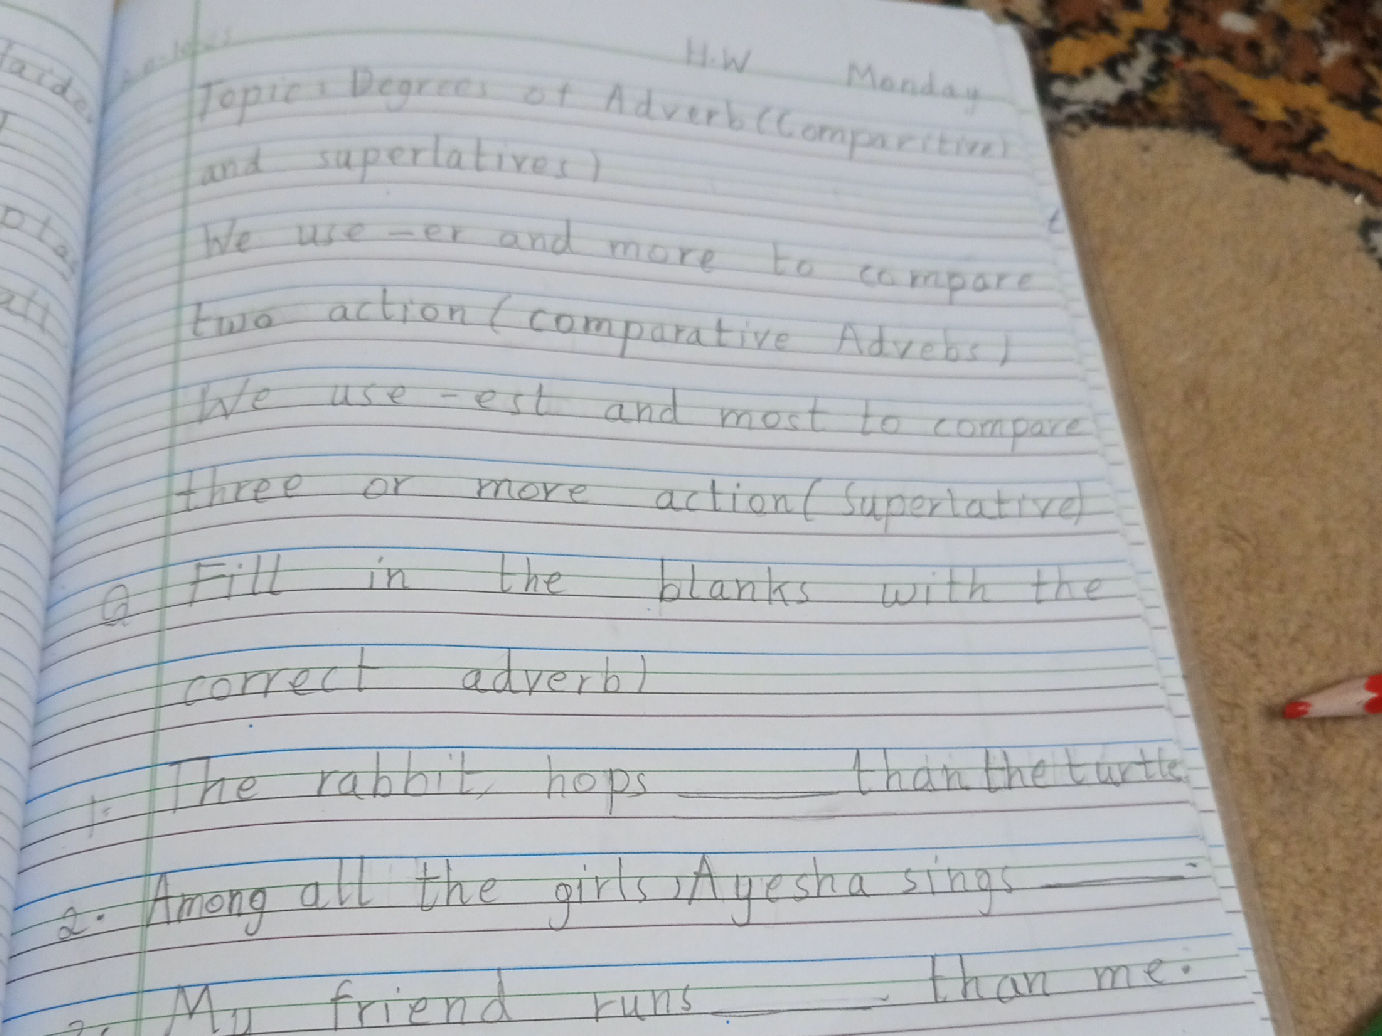 H.W Monday
Topic: Degrees of Adverb (Comparitive
and superlatives)
We use -er and more to compare
two action (comparative Advebs)
We use -est and most to compare
three or more action (Superlative)
Q Fill in the blanks with the
correct adverb)
1. The rabbit, hops ______ than the turtle
2. Among all the girls, Ayesha sings ______.
3. My friend runs ______ than me.